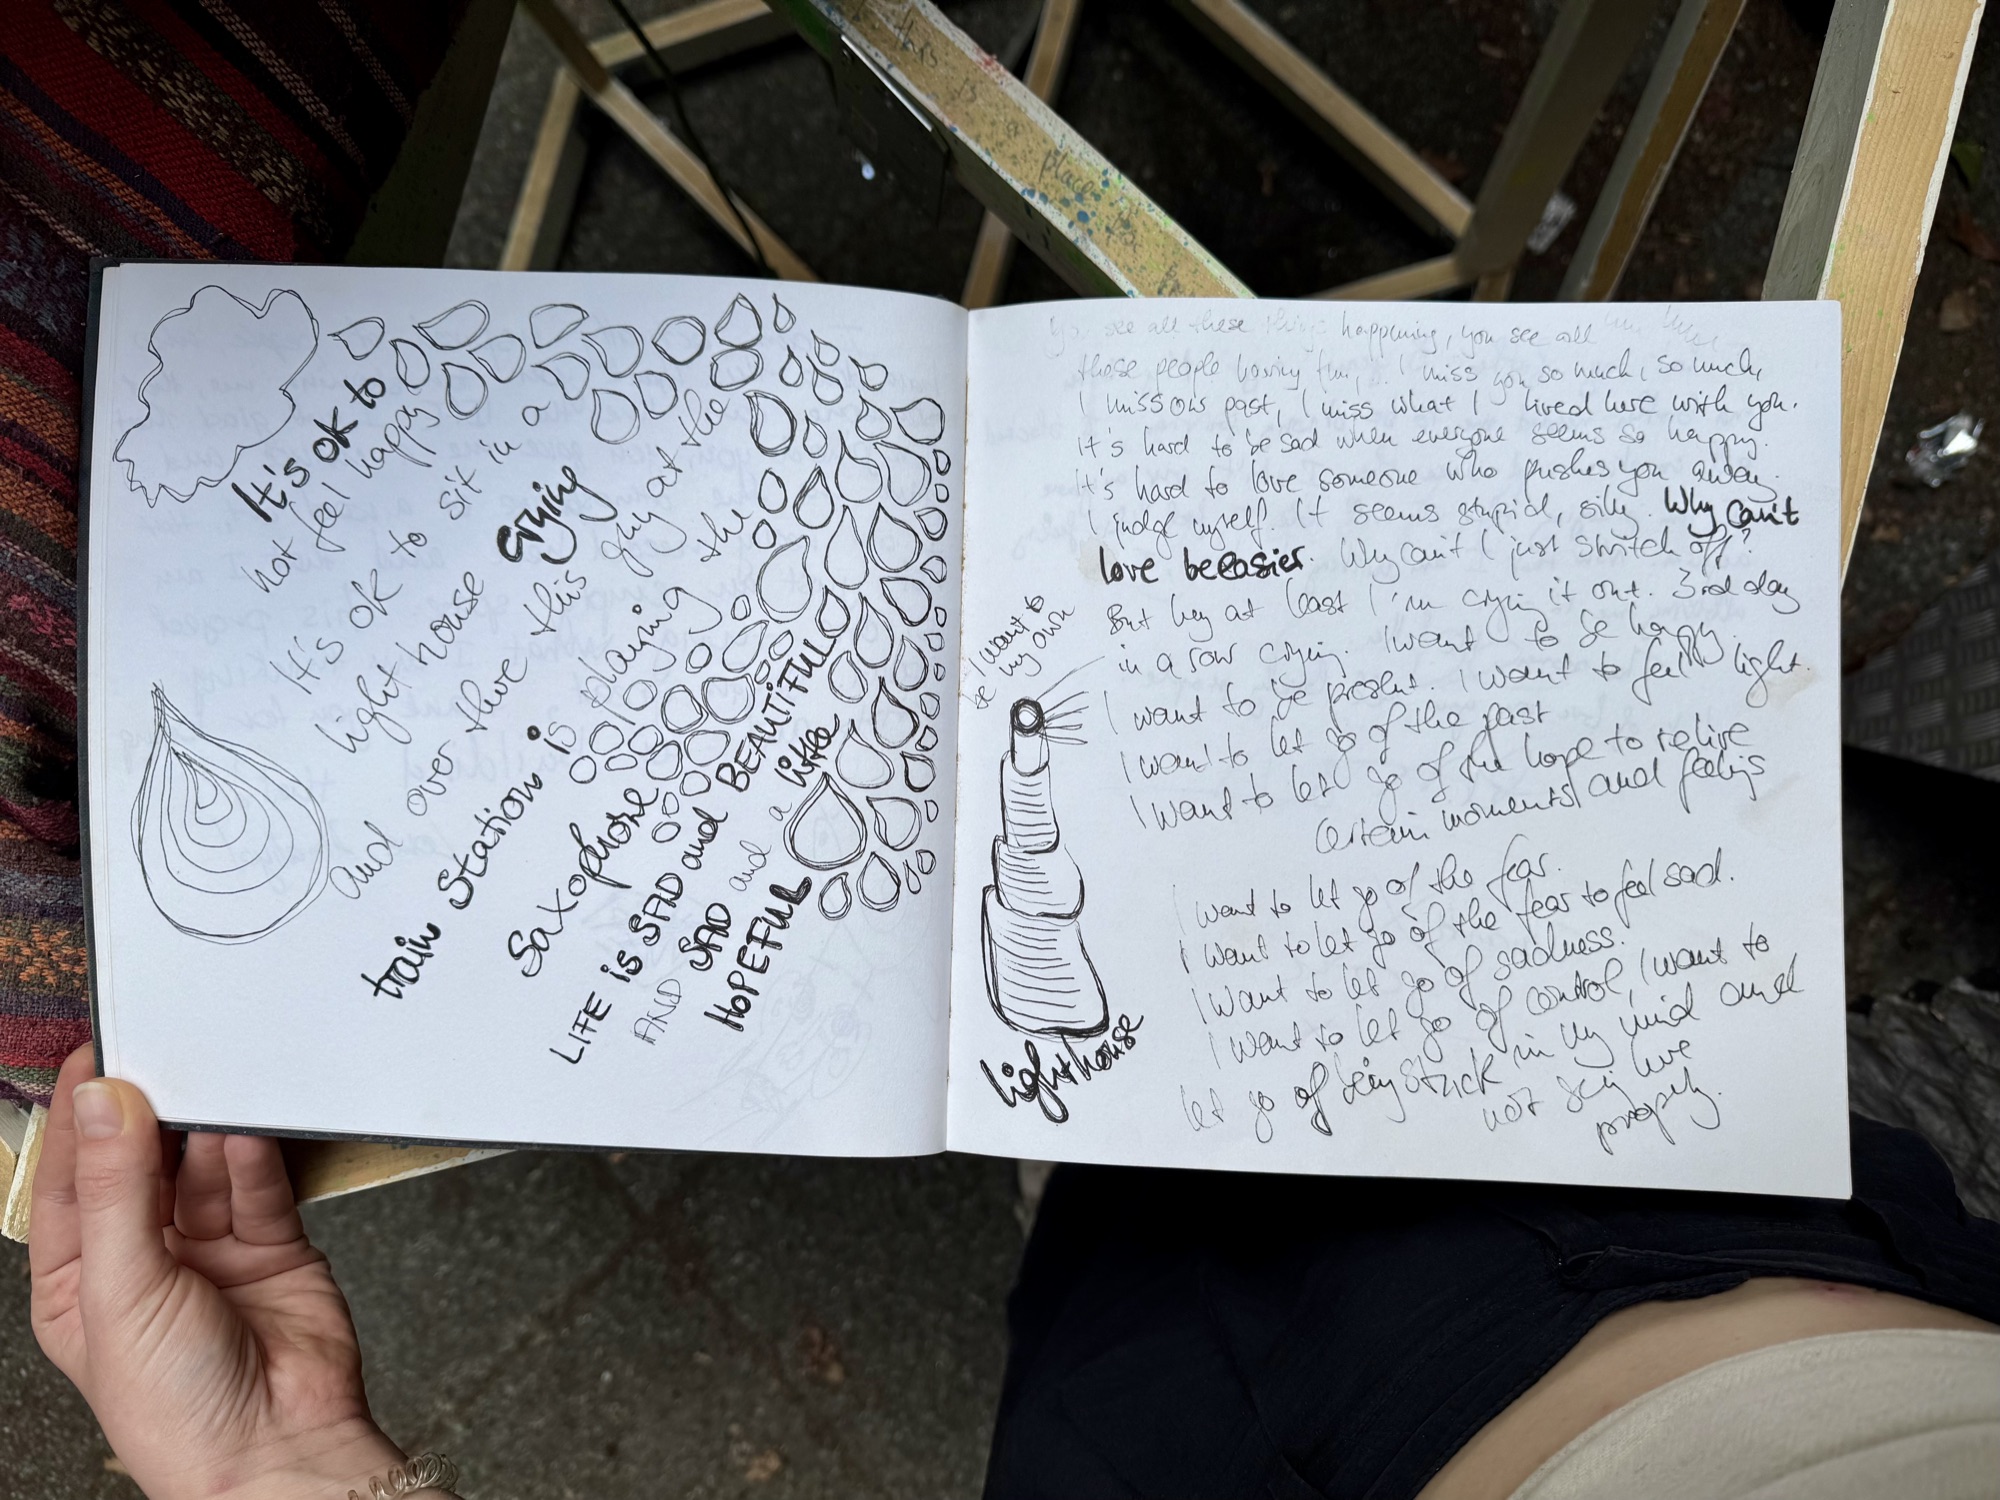 this is a place
It's ok to
not feel happy
It's ok to sit in a
light house crying
and over there this guy at the
train station is playing the
saxophone
LIFE is SAD and BEAUTIFUL
AND SAD and a little
HOPEFUL
You see all these things happening, you see all
these people having fun,.. I miss you so much, so much,
I miss our past, I miss what I lived here with you.
It's hard to be sad when everyone seems so happy.
It's hard to love someone who pushes you away.
I judge myself. It seems stupid, silly. Why can't
love be easier. Why can't I just switch off?
But hey at least I'm crying it out. 3rd day
in a row crying. I want to be happy.
I want to be present. I want to feel light.
I want to let go of the past
I want to let go of the hope to relive
certain moments and feelings
I want to let go of the fear.
I want to let go of the fear to feel sad.
I want to let go of sadness.
I want to let go of control, I want to
let go of being stuck in my mind and
not being live
properly.
I want to
be my own
lighthouse